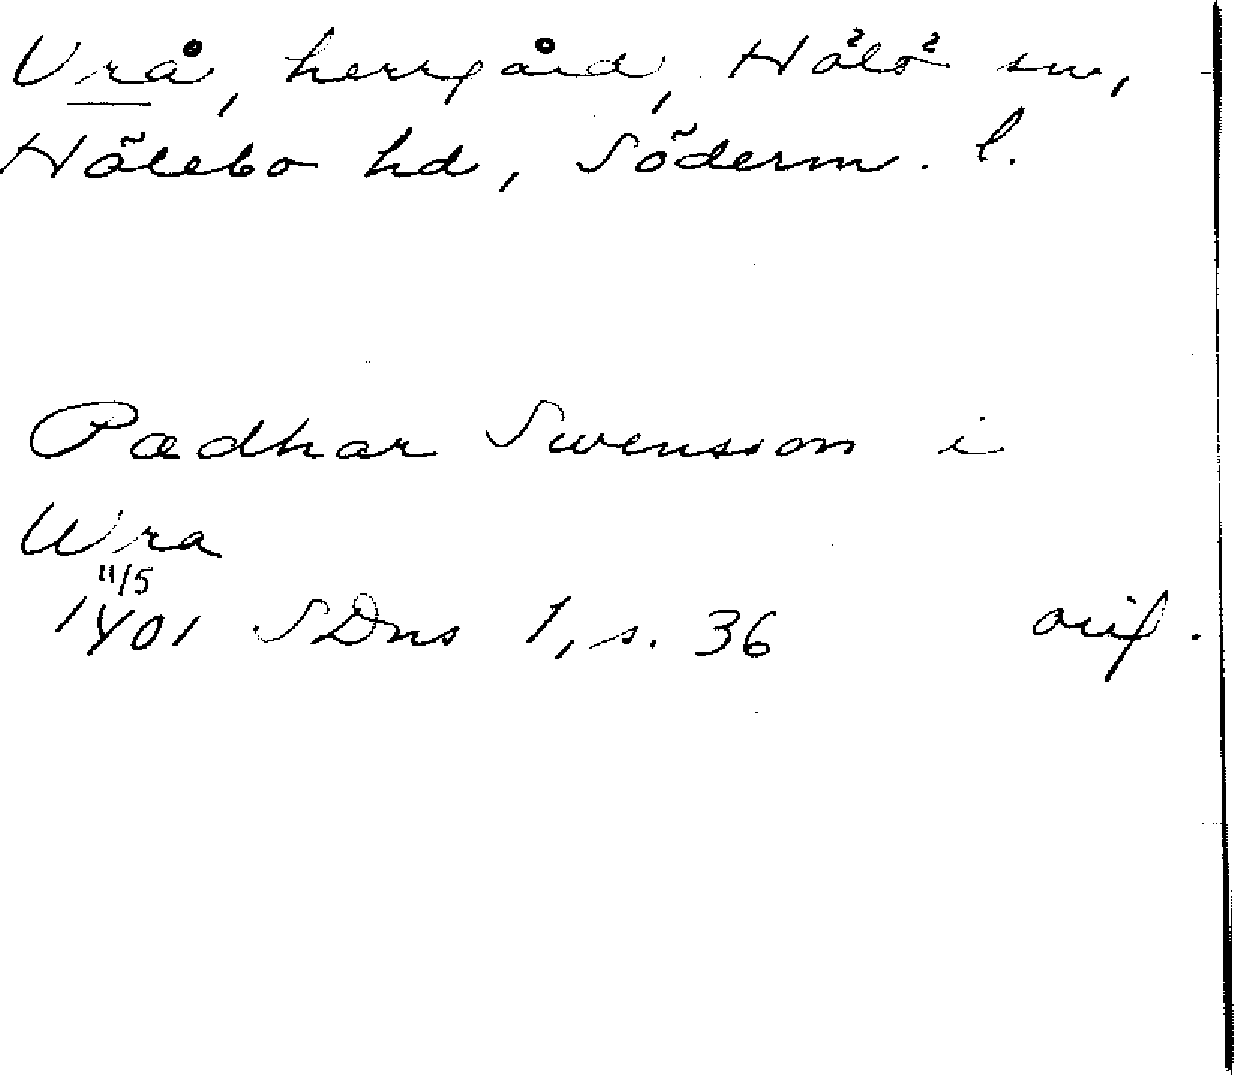 Vrå, herrgård, Hölö sn,
Hölebo hd, Söderm. l.
Pædhar Swensson i
Wra
11/5
1401 SDns 1, s. 36 orig.